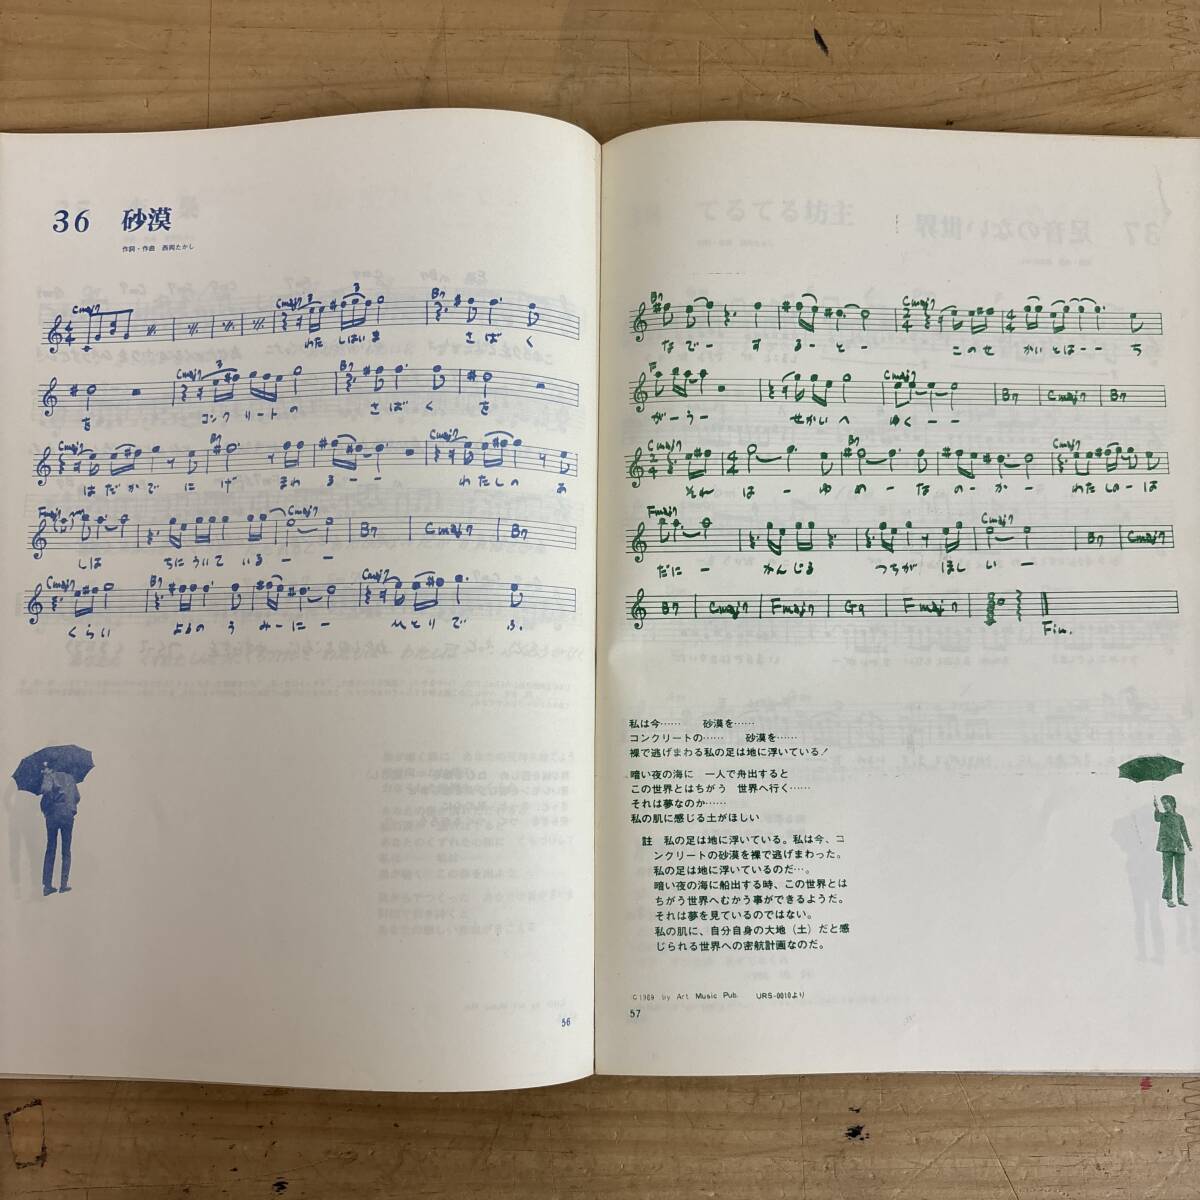 36 砂漠
作詞・作曲 西岡たかし
Cmaj7 Cmaj7 B7
わたしはいま さばく
Cmaj7 B7
を コンクリートの さばく を
Cmaj7 B7 Cmaj7
はだかで にげ まわ るーー わたしの あ
Fmaj7 Cmaj7 B7 Cmaj7 B7
しは ちにういて いるーー
Cmaj7 B7 Cmaj7
くらい よるの うみーにー ひとりで ふ
56
B7 Cmaj7
なでー するーとー このせ かいとはーー ち
Cmaj7 B7 Cmaj7 B7
がーうー せかいへ ゆくーー
Cmaj7 B7 Cmaj7
それ はー ゆめーなのーかー わたしのーは
Fmaj7 Cmaj7 B7 Cmaj7
だにー かんじる つちが ほしいー
B7 Cmaj7 Fmaj7 G9 Fmaj7
Fin.
私は今…… 砂漠を……
コンクリートの…… 砂漠を……
裸で逃げまわる私の足は地に浮いている!
暗い夜の海に 一人で舟出すると
この世界とはちがう 世界へ行く……
それは夢なのか……
私の肌に感じる土がほしい
註 私の足は地に浮いている。私は今、コ
ンクリートの砂漠を裸で逃げまわった。
私の足は地に浮いているのだ…。
暗い夜の海に船出する時、この世界とは
ちがう世界へむかう事ができるようだ。
それは夢を見ているのではない。
私の肌に、自分自身の大地（土）だと感
じられる世界への密航計画なのだ。
©1969 by Art Music Pub. URS-0010より
57